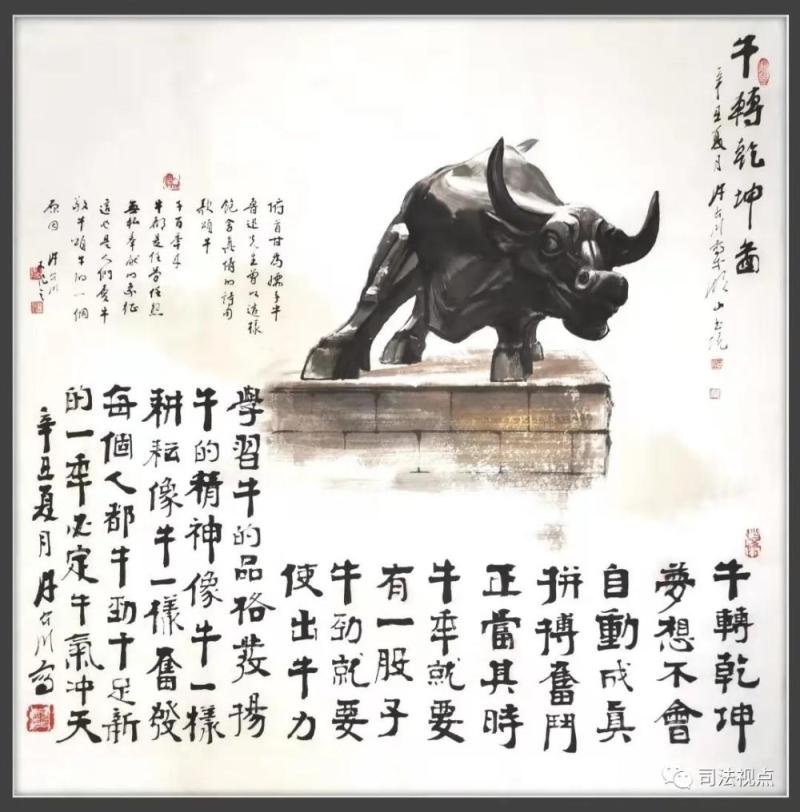 牛轉乾坤啚
辛丑夏月
俯首甘為孺子牛
魯迅先生曾以這樣
飽含真情的詩句
歌頌牛
千百年來
牛都是任勞任怨
無私奉献的象征
這也是人們愛牛
敬牛頌牛的一個
原因
牛轉乾坤
夢想不會
自動成真
拼搏奮鬥
正當其時
牛年就要
有一股子
牛勁就要
使出牛力
學習牛的品格發揚
牛的精神像牛一樣
耕耘像牛一樣奮發
每個人都牛勁十足新
的一年必定牛氣冲天
辛丑夏月
司法视点